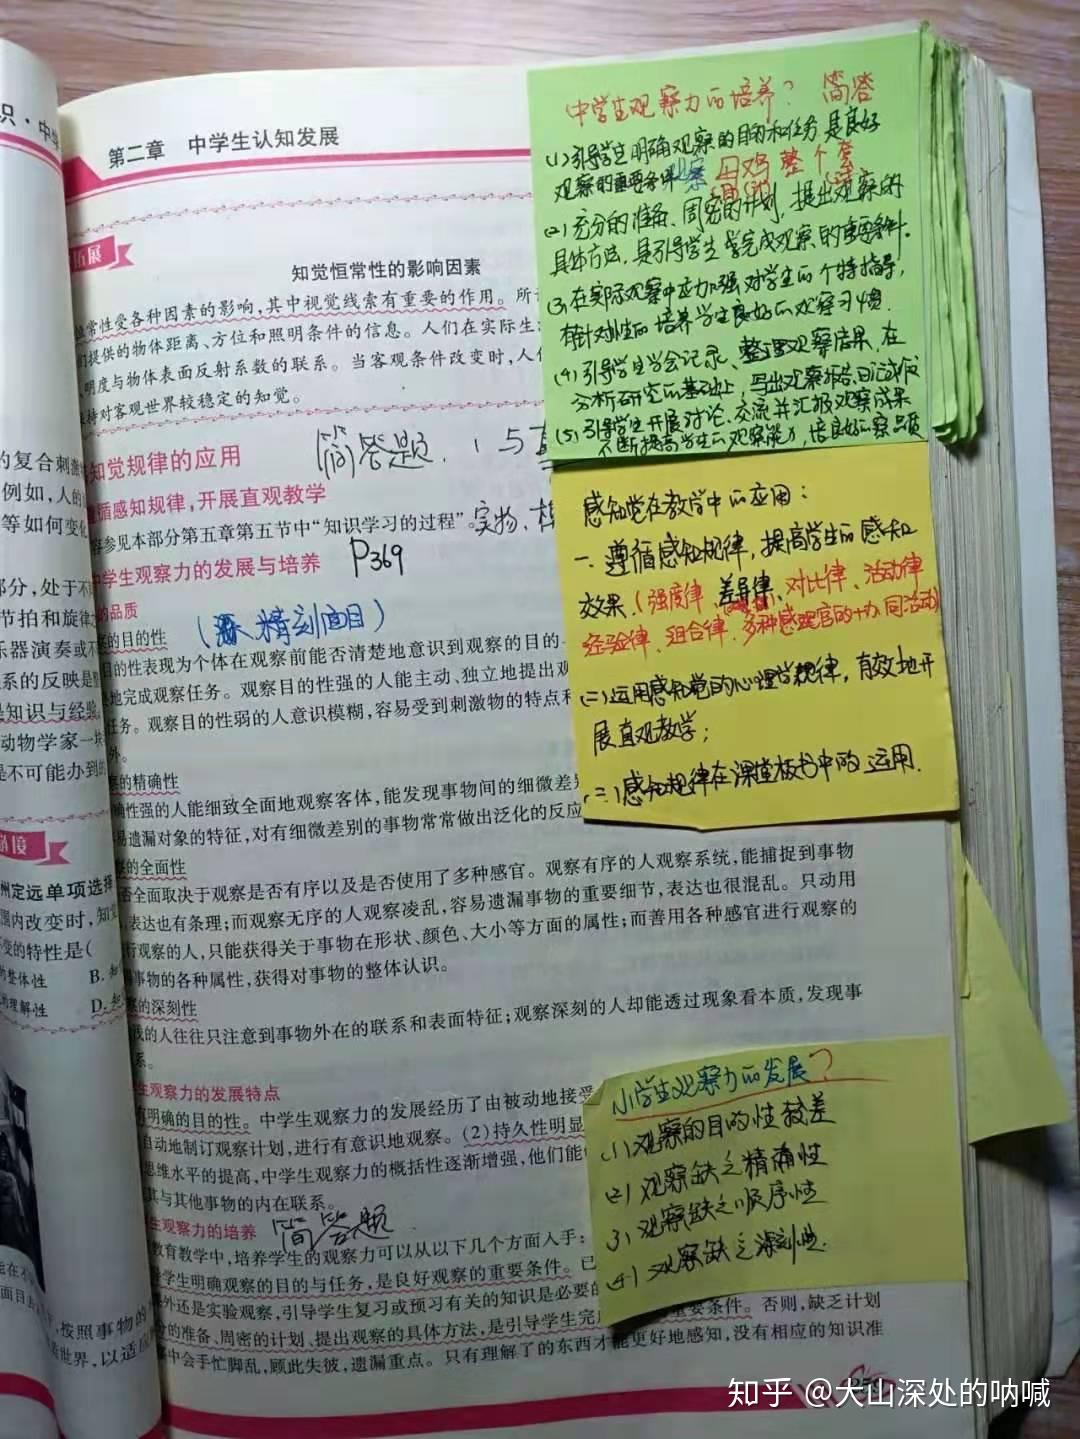 识·中学
第二章 中学生认知发展
拓展
知觉恒常性的影响因素
常性受各种因素的影响,其中视觉线索有重要的作用。所
提供的物体距离、方位和照明条件的信息。人们在实际生
明度与物体表面反射系数的联系。当客观条件改变时,人们
持对客观世界较稳定的知觉。
知觉规律的应用
简答题.
循感知规律,开展直观教学
参见本部分第五章第五节中“知识学习的过程”。
实物.
中学生观察力的发展与培养
P369
的品质
的目的性
精刻面目)
目的性表现为个体在观察前能否清楚地意识到观察的目的
地完成观察任务。观察目的性强的人能主动、独立地提出观
任务。观察目的性弱的人意识模糊,容易受到刺激物的特点和
外。
的精确性
确性强的人能细致全面地观察客体,能发现事物间的细微差别
易遗漏对象的特征,对有细微差别的事物常常做出泛化的反应
察的全面性
否全面取决于观察是否有序以及是否使用了多种感官。观察有序的人观察系统,能捕捉到事物
表达也有条理;而观察无序的人观察凌乱,容易遗漏事物的重要细节,表达也很混乱。只动用
行观察的人,只能获得关于事物在形状、颜色、大小等方面的属性;而善用各种感官进行观察的
事物的各种属性,获得对事物的整体认识。
察的深刻性
浅的人往往只注意到事物外在的联系和表面特征;观察深刻的人却能透过现象看本质,发现事
系。
生观察力的发展特点
有明确的目的性。中学生观察力的发展经历了由被动地接受
自动地制订观察计划,进行有意识地观察。(2)持久性明显
思维水平的提高,中学生观察力的概括性逐渐增强,他们能
其与其他事物的内在联系。
生观察力的培养
简答题
教育教学中,培养学生的观察力可以从以下几个方面入手:
导学生明确观察的目的与任务,是良好观察的重要条件。已
外还是实验观察,引导学生复习或预习有关的知识是必要的
分的准备、周密的计划、提出观察的具体方法,是引导学生完
重要条件。否则,缺乏计划
中会手忙脚乱,顾此失彼,遗漏重点。只有理解了的东西才能更好地感知,没有相应的知识准
中学生观察力的培养? 简答
(1)引导学生明确观察的目的和任务是良好
观察的重要条件
(2)充分的准备、周密的计划,提出观察的
具体方法,是引导学生完成观察的重要条件.
(3)在实际观察中应加强对学生的个特指导,
有针对性的培养学生良好的观察习惯.
(4)引导学生学会记录、整理观察结果,在
分析研究的基础上,写出观察报告、日记或作
(5)引导学生开展讨论、交流并汇报观察成果
不断提高学生的观察能力,培良好的察品质
感知觉在教学中的应用:
一.遵循感知规律,提高学生的感知
效果.(强度律、差异律、对比律、活动律
经验律、组合律、多种感觉官的协同活动)
(二)运用感知觉的心理学规律,有效地开
展直观教学;
(三)感知规律在课堂板书中的运用.
小学生观察力的发展?
(1)观察的目的性较差
(2)观察缺乏精确性
3)观察缺乏顺序性
(4)观察缺乏深刻性.
的复合刺激
例如,人的
等如何变化
部分,处于不
节拍和旋律
乐器演奏或不
系的反映是
是知识与经验
动物学家一块
是不可能办到的
链接
州定远单项选择
围内改变时,知觉
不变的特性是(
的整体性 B.
的理解性 D.
按照事物的
世界,以适应
知乎 @大山深处的呐喊